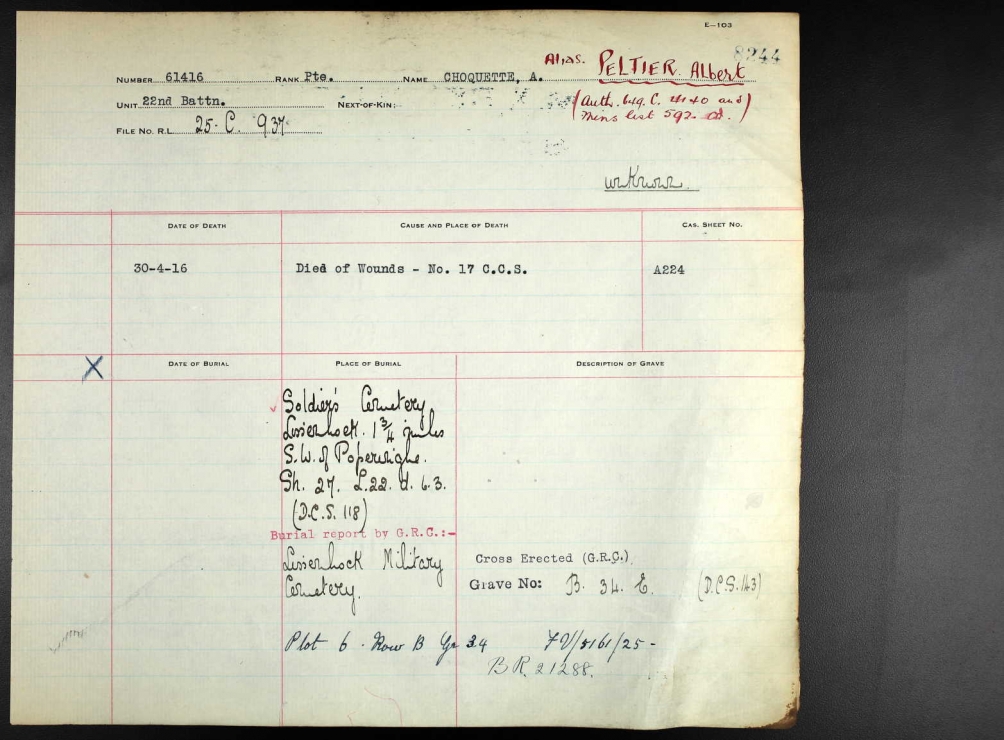 E-103
Alias. PELTIER. Albert 8244
NUMBER 61416 RANK Pte. NAME CHOQUETTE, A.
UNIT 22nd Battn. NEXT-OF-KIN:
(Auth. 649. C. and)
Mins list 592.
FILE NO. R.L. 25. C. 937.
unknown.
DATE OF DEATH CAUSE AND PLACE OF DEATH CAS. SHEET NO.
30-4-16 Died of Wounds - No. 17 C.C.S. A224
X DATE OF BURIAL PLACE OF BURIAL DESCRIPTION OF GRAVE
Soldier's Cemetery
Lissenhoek. 1 3/4 miles
S.W. of Poperinghe.
Sh. 27. L.22. d. 6.3.
(D.C.S. 118)
Burial report by G.R.C.:-
Lissenhock Military
Cemetery.
Cross Erected (G.R.C.)
Grave No: B. 34. E. (D.C.S. 143)
Plot 6 - Row B Gr 34 /5161/25-
B.R. 21288.